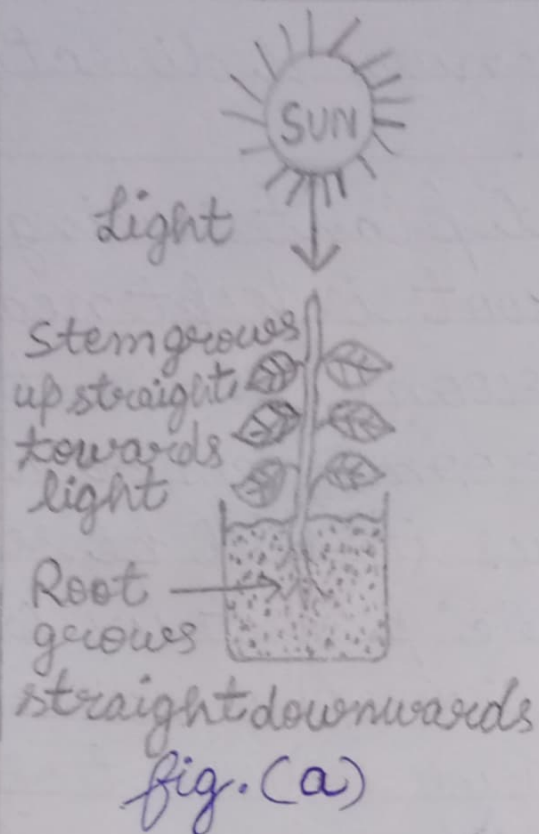 SUN
Light
Stem grows
up straight
towards
light
Root
grows
straight downwards
fig. (a)